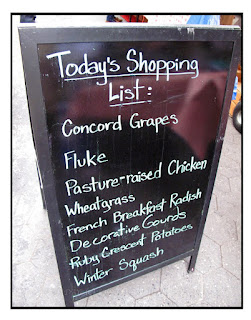 Today's Shopping
List:
Concord Grapes
Fluke
Pasture-raised Chicken
Wheatgrass
French Breakfast Radish
Decorative Gourds
Ruby Crescent Potatoes
Winter Squash